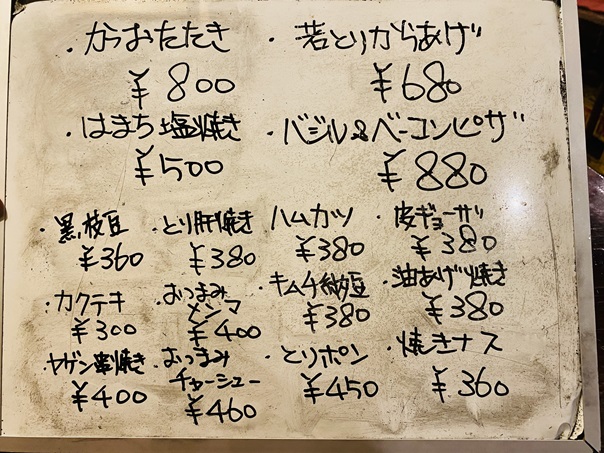 ・かつおたたき
¥800
・若とりからあげ
¥680
・はまち塩焼き
¥500
・バジル&ベーコンピザ
¥880
・黒枝豆
¥360
・とり肝焼き
¥380
ハムカツ
¥380
・皮ギョーザ
¥380
・カクテキ
¥300
・おつまみ
メンマ
¥400
・キムチ納豆
¥380
・油あげ焼き
¥380
・ヤゲン串焼き
¥400
・おつまみ
チャーシュー
¥460
・とりポン
¥450
・焼きナス
¥360